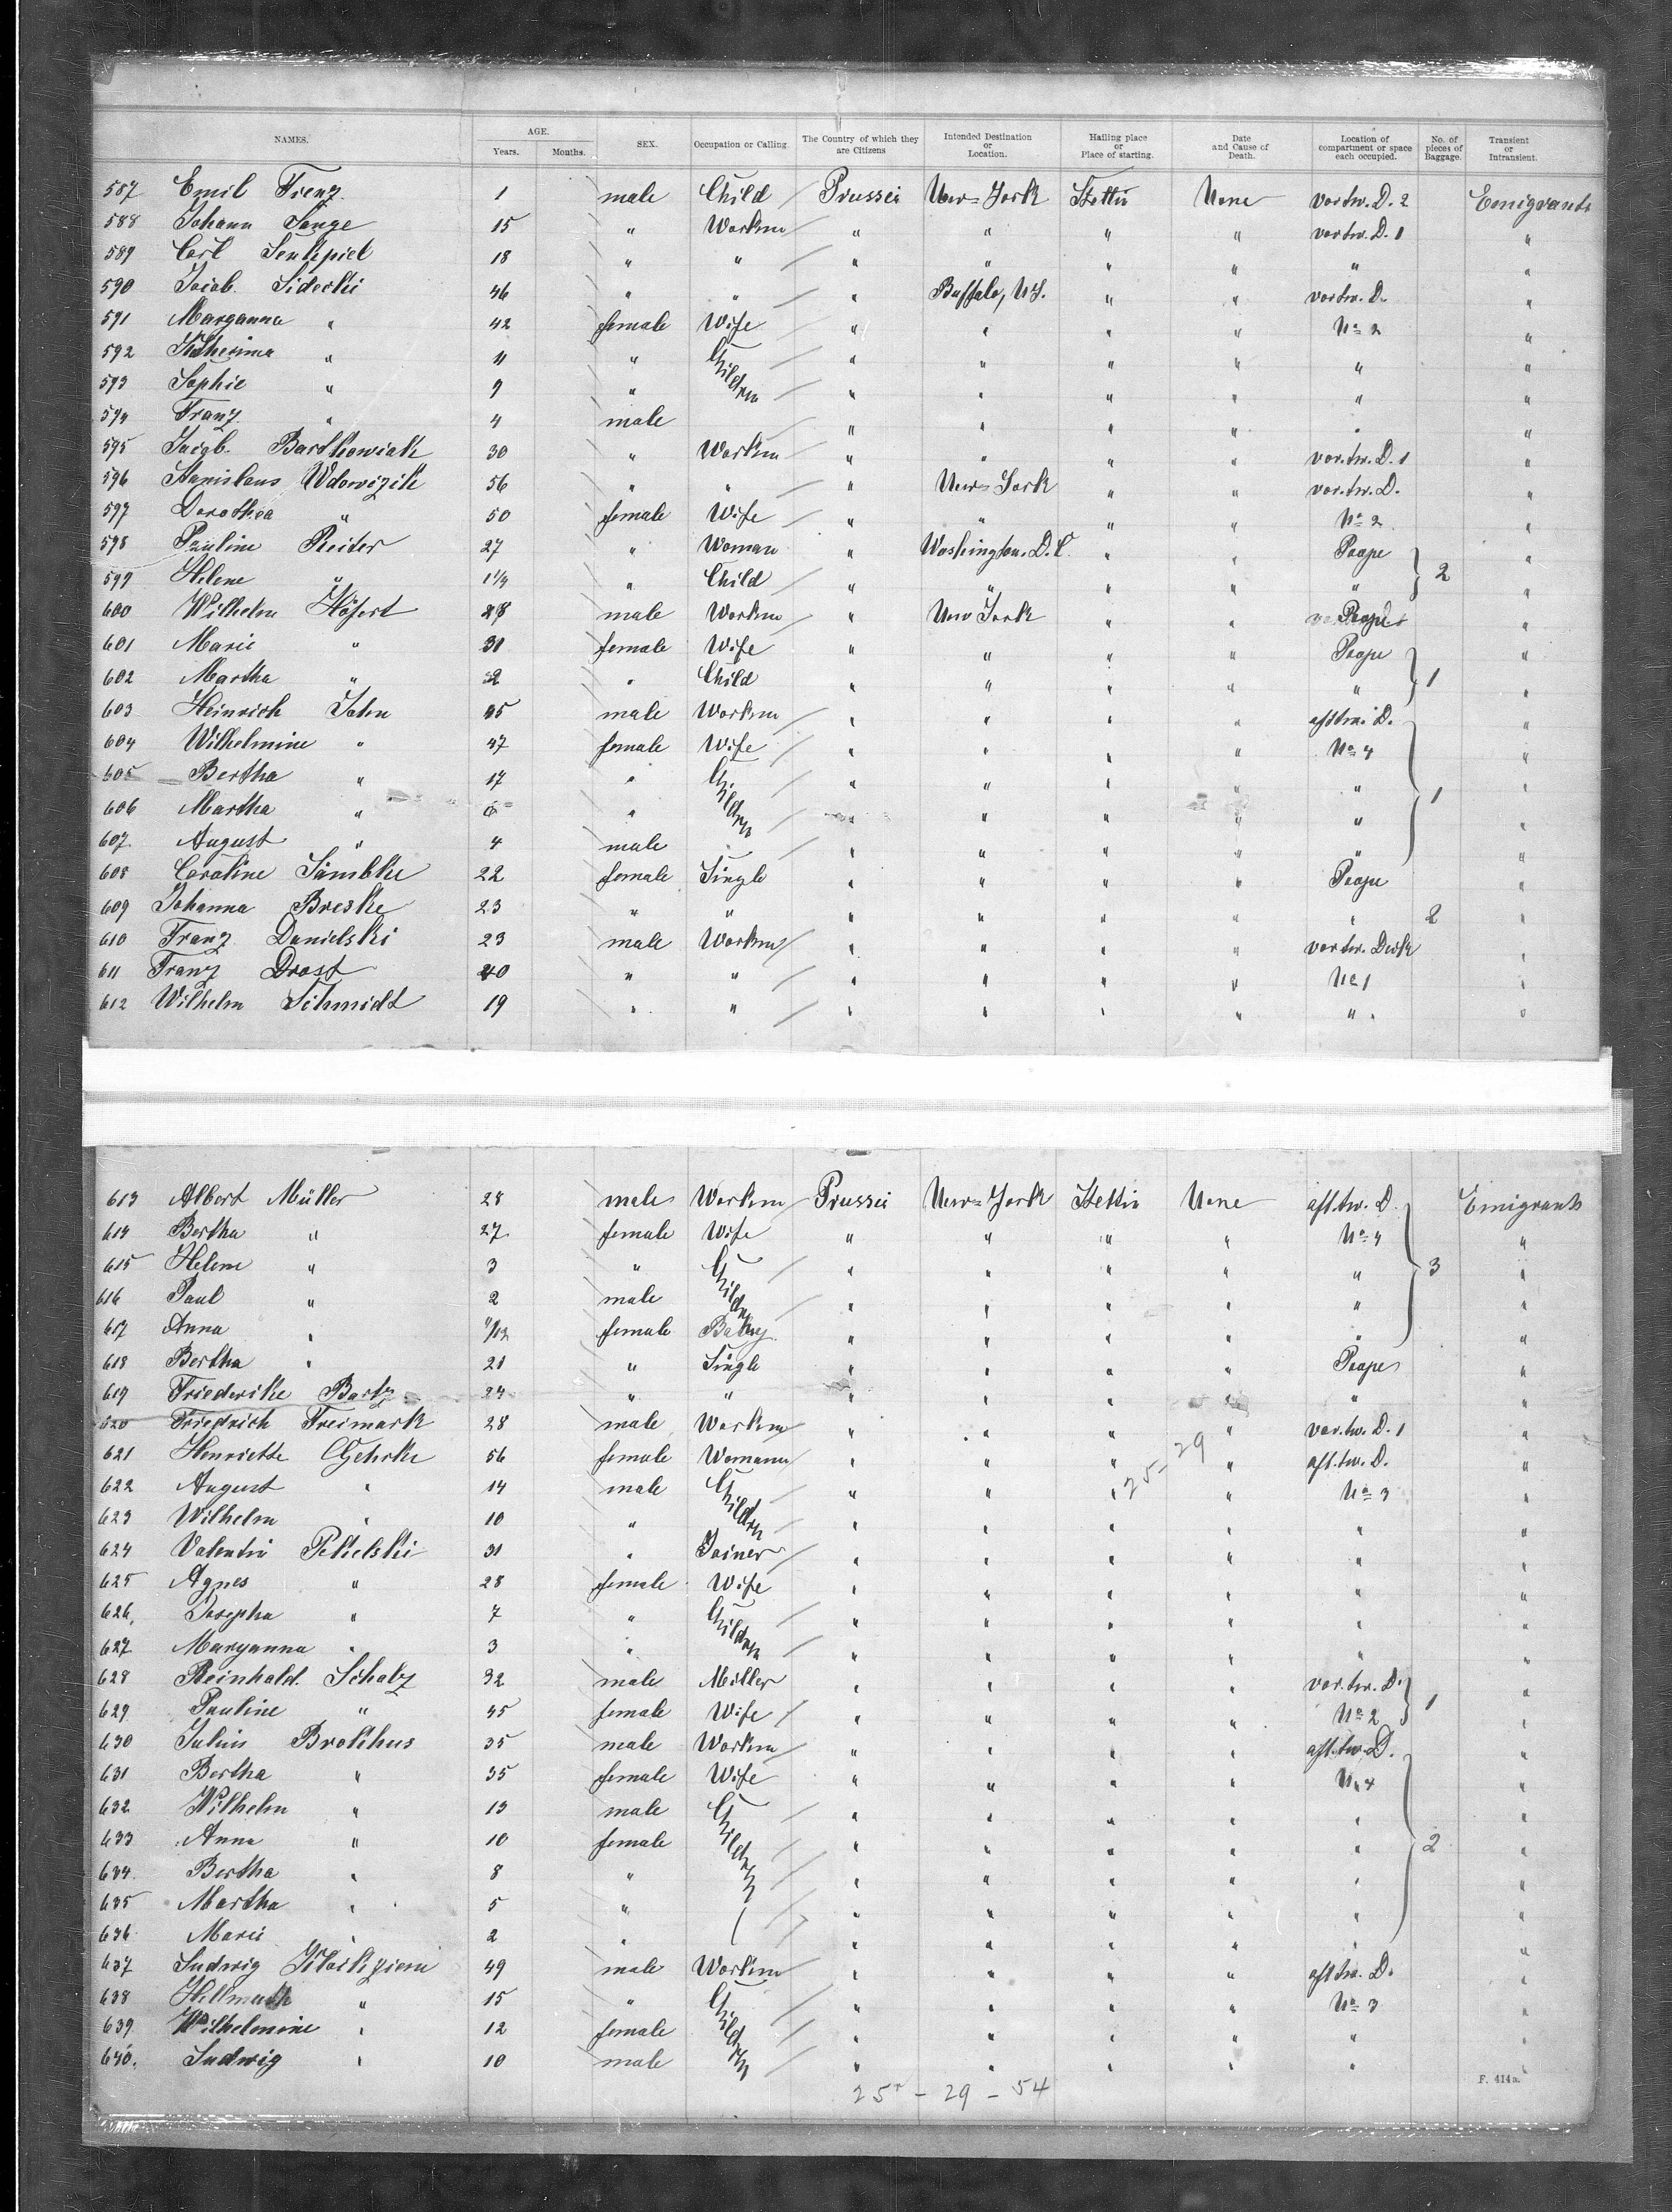 NAMES. AGE. Years. Months. SEX. Occupation or Calling. The Country of which they are Citizens Intended Destination or Location. Hailing place or Place of starting. Date and Cause of Death. Location of compartment or space each occupied. No. of pieces of Baggage. Transient or Intransient.
587 Emil Frenz 1 male Child Prussei New-York Stettin None vor.tw. D. 2 Emigrants
588 Johann Lange 15 " Workm " " " " vor.tw. D. 1 "
589 Carl Senkpiel 18 " " " " " " " "
590 Jacob Siderski 46 " " " Buffalo, NY. " " vor.tw. D. "
591 Maryanna " 42 female Wife " " " " No 2 "
592 Katherina " 11 " Children " " " " " "
593 Sophie " 9 " " " " " " "
594 Franz " 4 male " " " " " "
595 Jacob Barthowiak 30 " Workm " " " " vor.tw. D. 1 "
596 Stanislaus Wdowizik 56 " " " New-York " " vor.tw. D. "
597 Dorothea " 50 female Wife " " " " No 2 "
598 Pauline Reiter 27 " Woman " Washington. D.C. " " Poope "
599 Helene " 1 1/4 " Child " " " " " 2 "
600 Wilhelm Höfert 28 male Workm " New York " " Poope "
601 Marie " 31 female Wife " " " " Poope "
602 Martha " 2 " Child " " " " " 1 "
603 Heinrich John 45 male Workm " " " " aft.tw. D. "
604 Wilhelmine " 47 female Wife " " " " No 4 "
605 Bertha " 17 " Children " " " " " "
606 Martha " 6 " " " " " " 1 "
607 August " 4 male " " " " " "
608 Caroline Lämbke 22 female Single " " " " Poope "
609 Johanna Breske 23 " " " " " " " 2 "
610 Franz Danielski 23 male Workm " " " " vor.tw. Deck "
611 Franz Drost 40 " " " " " " No 1 "
612 Wilhelm Schmidt 19 " " " " " " " "
613 Albert Müller 28 male Workm Prussei New-York Stettin None aft.tw. D. Emigrants
614 Bertha " 27 female Wife " " " " No 4 "
615 Helene " 3 " Children " " " " " 3 "
616 Paul " 2 male " " " " " "
617 Anna " 11/12 female Baby " " " " " "
618 Bertha " 21 " Single " " " " Poope "
619 Friederike Bartz 24 " " " " " " " "
620 Friedrich Freimark 28 male Workm " " " " vor.tw. D. 1 "
621 Henriette Gehrke 56 female Womann " " " " aft.tw. D. "
25-29
622 August " 14 male Children " " " " No 3 "
623 Wilhelm " 10 " " " " " " "
624 Valentin Petielski 31 " Joiner " " " " " "
625 Agnes " 28 female Wife " " " " " "
626 Josepha " 7 " Children " " " " " "
627 Maryanna " 3 " " " " " " "
628 Reinhold Scholz 32 male Miller " " " " vor.tw. D. "
629 Pauline " 45 female Wife " " " " No 2 1 "
630 Julius Brokhus 35 male Workm " " " " aft.tw. D. "
631 Bertha " 35 female Wife " " " " No 4 "
632 Wilhelm " 13 male Children " " " " " "
633 Anna " 10 female " " " " " 2 "
634 Bertha " 8 " " " " " " "
635 Martha " 5 " " " " " " "
636 Marie " 2 " " " " " " "
637 Ludwig 49 male Workm " " " " aft.tw. D. "
638 Hellmuth " 15 " Children " " " " No 3 "
639 Wilhelmine " 12 female " " " " " "
640 Ludwig " 10 male " " " " " "
25 - 29 - 54
F. 414a.